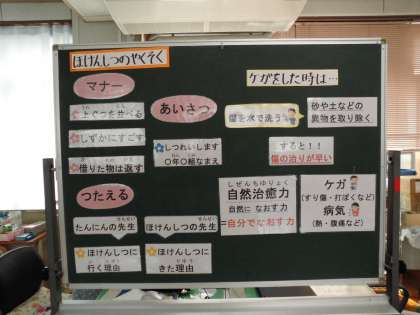 ほけんしつのやくそく
マナー
うわぐつを並べる
しずかにすごす
借りた物は返す
あいさつ
しつれいします
○年○組なまえ
つたえる
たんにんの先生
ほけんしつの先生
ほけんしつに
行く理由
ほけんしつに
きた理由
ケガをした時は…
傷を水で洗う
砂や土などの
異物を取り除く
すると！！
傷の治りが早い
しぜんちゆりょく
自然治癒力
自然に なおす力
=自分でなおす力
ケガ
(すり傷・打ぼくなど)
病気
(熱・腹痛など)